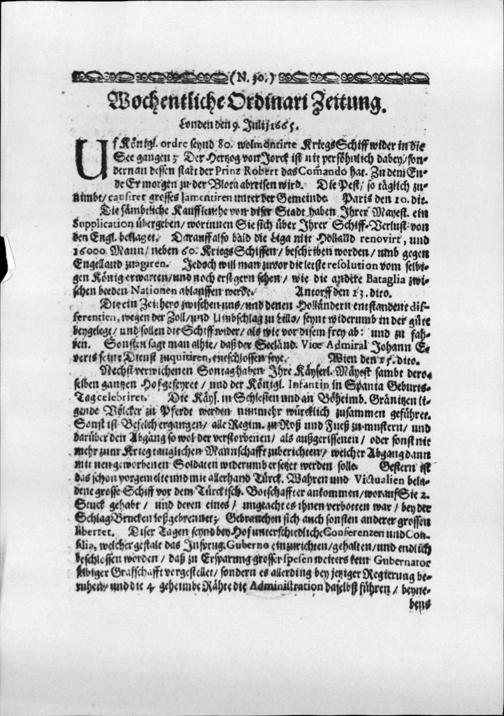 (N. 30.)
Wochentliche Ordinari Zeitung.
Londen den 9. Julij 1665.
Uf Königl. ordre seynd 80. wolmontirte KriegsSchiff wider in die
See gangen; Der Hertzog von Jorck ist nit persöhnlich dabey/ son-
dern an dessen statt der Prinz Robert das Comando hat. Zu dem En-
de Er morgen zu der Flota abreisen wird. Die Pest/ so täglich zu-
nimbt/ causiret grosses lamentiren unter der Gemeinde. Paris den 10. dit.
Die sämbtliche Kauffleuthe von diser Statt haben Ihrer Mayest. ein
Supplication übergeben/ worinnen Sie sich über Ihrer Schiff-Verlust von
den Engl. beklaget. Darauff also bald die Liga mit Holland renovirt, und
16000 Mann/ neben 60. Kriegs Schiffen/ beschriben worden/ umb gegen
Engelland zu agiren. Jedoch will man zuvor die letste resolution vom selbi-
gen König erwarten/ und noch erst gern sehen/ wie die andere Bataglia zwi-
schen beeden Nationen ablauffen werde. Antorff den 13. dito.
Die ein Zeithero zwischen uns/ und denen Holländern entstandene dif-
ferentien, wegen der Zoll/ und Umbschlag zu Lillo/ seynd widerumb in der güte
beygelegt/ und sollen die Schiff wider/ als wie vor disem frey ab- und zu fah-
ren. Sonsten sagt man alhie/ daß der Seeländ. Vice Admiral Johann E-
verts seine Dienst zu quitiren, entschlossen seye. Wien den 15. dito.
Nechst verwichenen Sontag haben Ihre Käyserl. Mayest sambt dero-
selben gantzen Hof gefeyret/ und der Königl. Infantin in Spania Geburts-
Tag celebriret. Die Käys. in Schlesien und an Böheimb. Gräntzen li-
gende Völcker zu Pferde werden nunmehr würcklich zusammen geführet.
Sonst ist Befelch ergangen/ alle Regim. zu Roß und Fueß zu mustern/ und
darüber den Abgang so wol der verstorbenen/ als außgerissenen/ oder sonst nie
mehr zum Krieg tauglichen Mannschafft zu berichten/ welcher Abgang dann
mit neugeworbenen Soldaten widerumb ersetzt werden solle. Gestern ist
das schon vorgemelte und mit allerhand Türck. Wahren und Victualien bela-
dene grosse Schiff vor dem Türckisch. Botschaffter ankommen/ worauf Sie 2.
Stuck gehabt/ und deren eines/ ungeacht es ihnen verbotten war/ bey der
Schlag-Brucken loß gebrennet; Gebrauchen sich auch sonsten anderer grossen
libertet. Diser Tagen seynd bey Hof unterschidliche Conferenzen und Con-
silia, welcher gestalt das Insprug. Guberno einzurichten/ gehalten/ und endlich
beschlossen worden/ daß zu Ersparung grosser spesen weiters kein Gubernator
selbiger Graffschafft vorgestellet/ sondern es allerding bey jetziger Regierung be-
ruhen/ und die 4. geheimde Räthe die Administration daselbst führen/ beyne-
bens